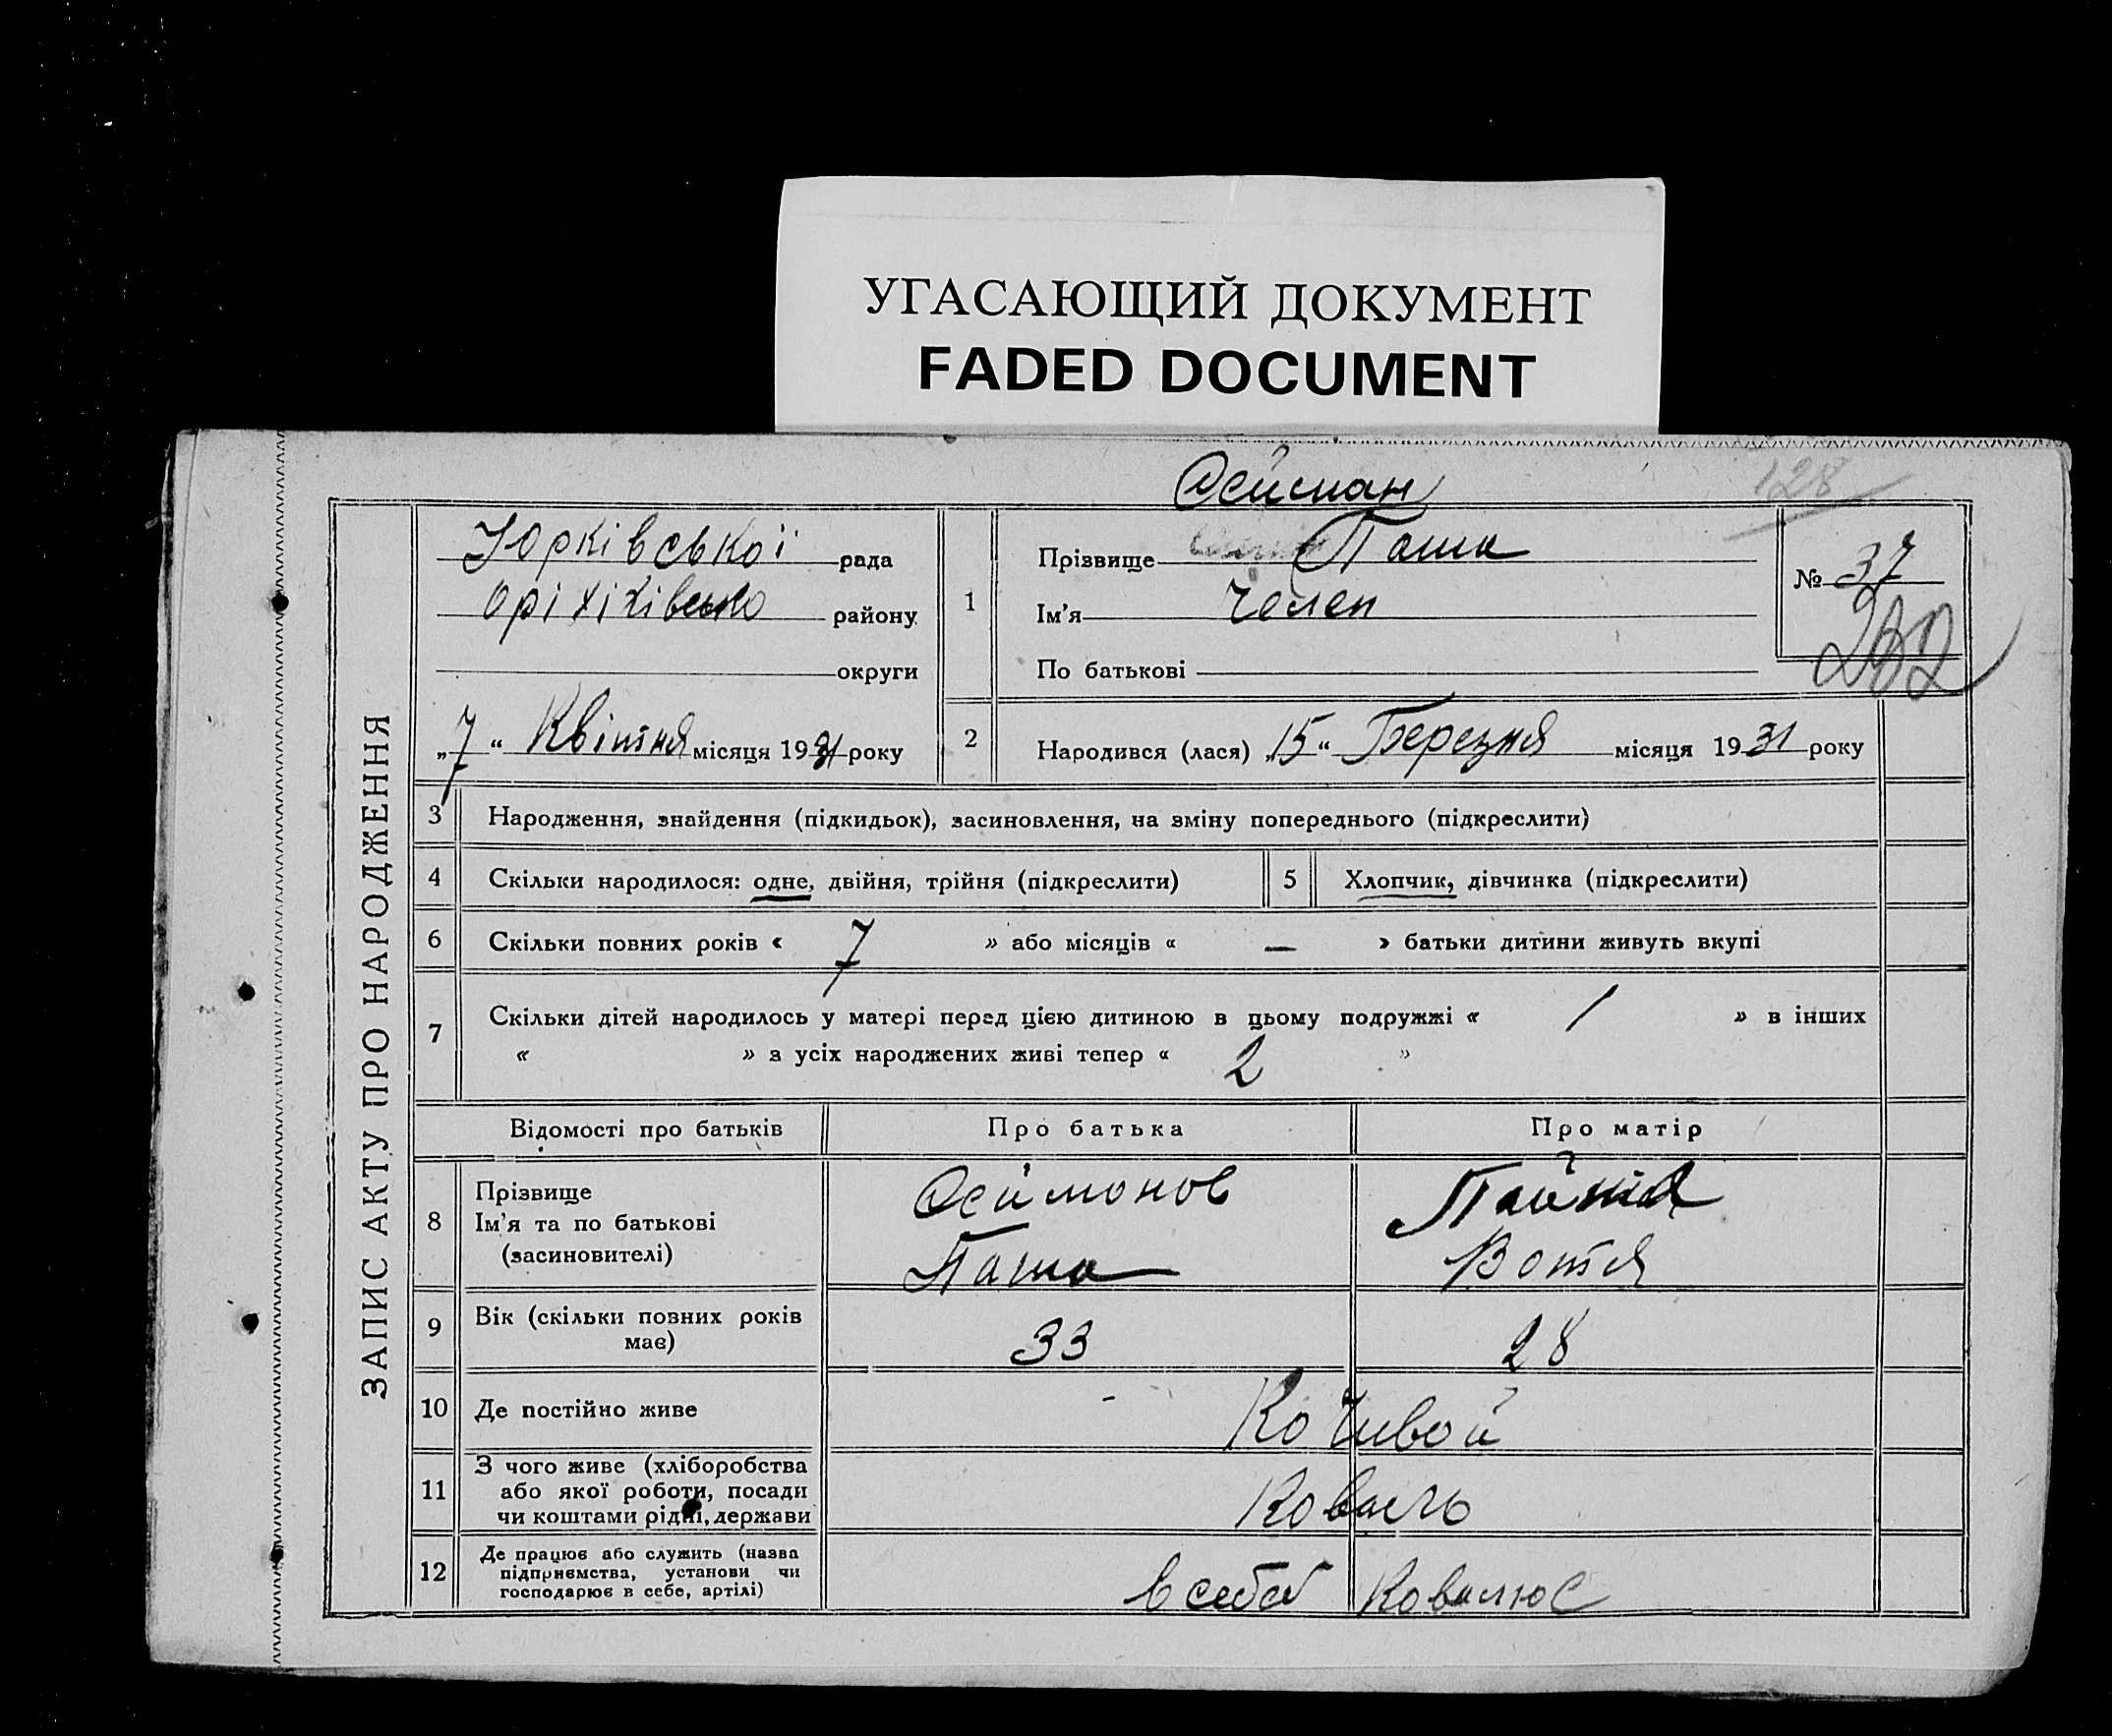 УГАСАЮЩИЙ ДОКУМЕНТ
FADED DOCUMENT
128
ЗАПИС АКТУ ПРО НАРОДЖЕННЯ
Юрківської рада
району
округи
„7“ Квітня місяця 1931 року
1
Прізвище Паша
Ім'я Челеп
По батькові
№ 37
2
Народився (лася) „15“ Березня місяця 1931 року
3 Народження, знайдення (підкидьок), засиновлення, на зміну попереднього (підкреслити)
4 Скільки народилося: одне, двійня, трійня (підкреслити)
5 Хлопчик, дівчинка (підкреслити)
6 Скільки повних років « 7 » або місяців « — » батьки дитини живуть вкупі
7 Скільки дітей народилось у матері перед цією дитиною в цьому подружжі « 1 » в інших
« » з усіх народжених живі тепер « 2 »
Відомості про батьків Про батька Про матір
8 Прізвище
Ім'я та по батькові
(засиновителі)
Паша Вотя
9 Вік (скільки повних років
має)
33 28
10 Де постійно живе Кочивой
11 З чого живе (хліборобства
або якої роботи, посади
чи коштами рідні, держави
Коваль
12 Де працює або служить (назва
підприємства, установи чи
господарює в себе, артілі)
в себе Ковалює